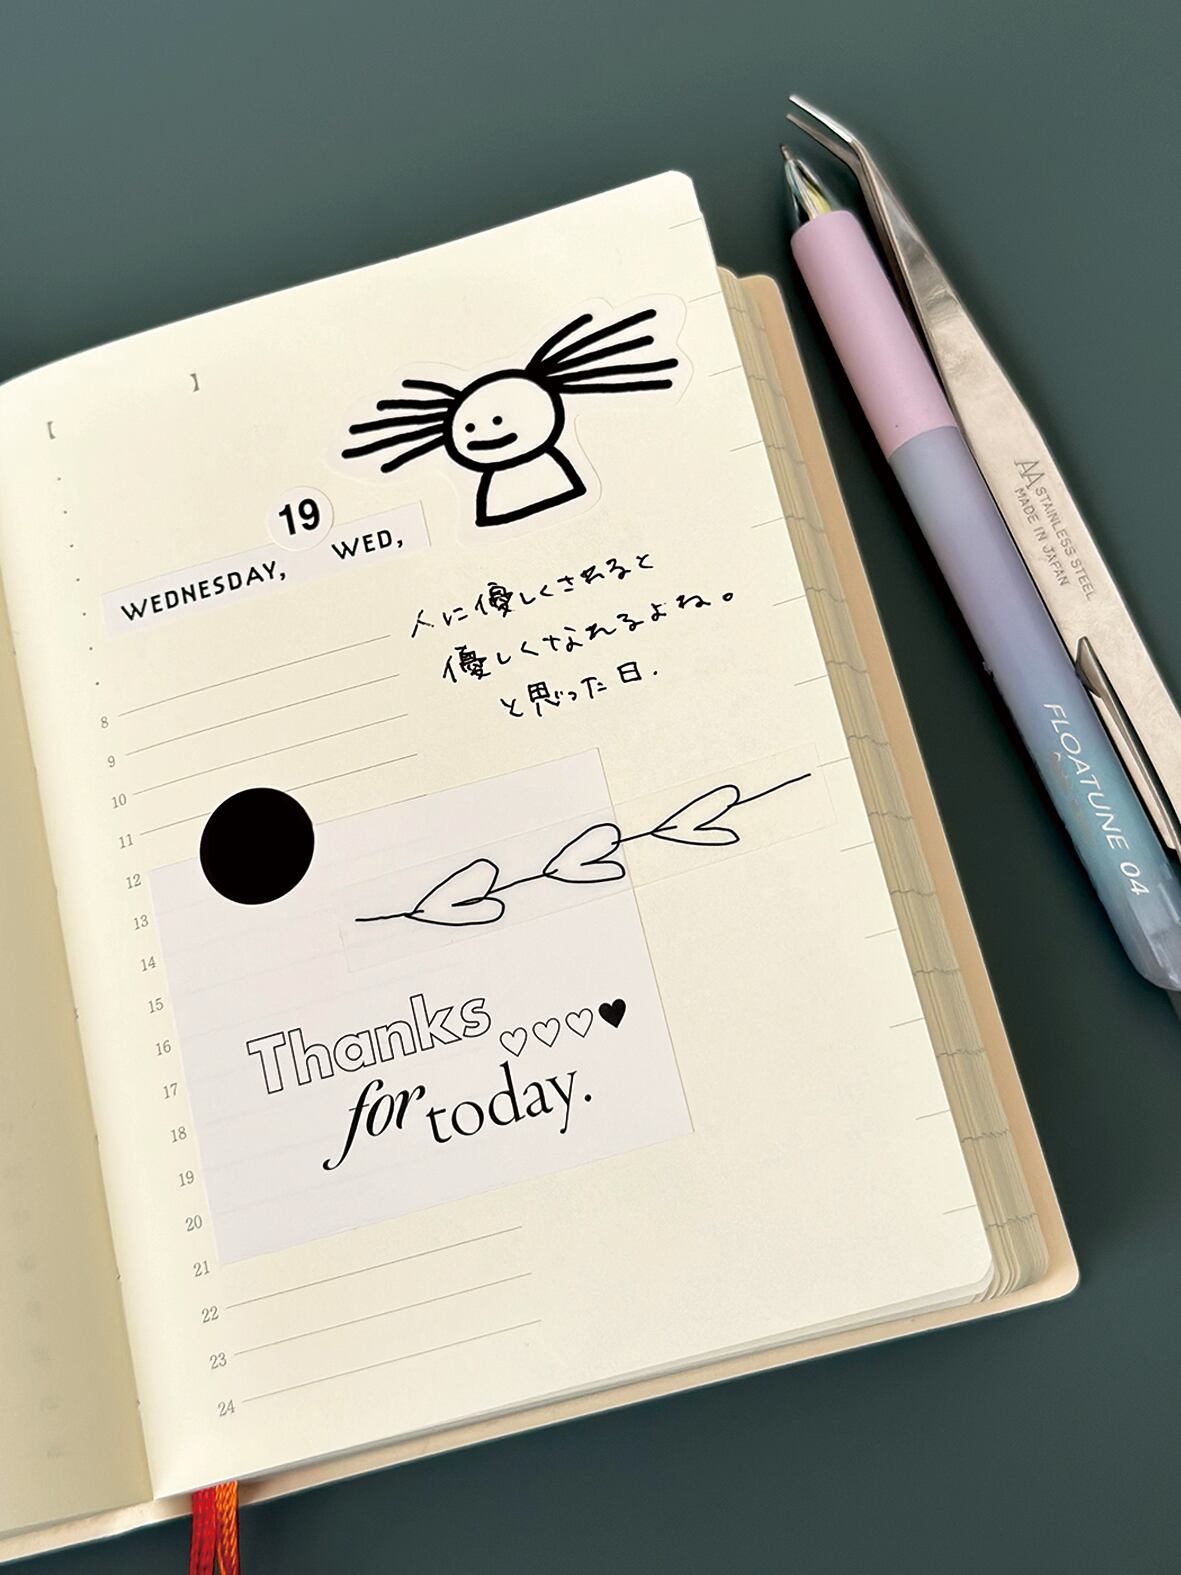 【 】
19
WEDNESDAY, WED,
人に優しくされると
優しくなれるよね。
と思った日.
8
9
10
11
12
13
14
15
16
17
18
19
20
21
22
23
24
Thanks ♡♡♡♥
for today.
AA STAINLESS STEEL
MADE IN JAPAN
FLOATUNE 04